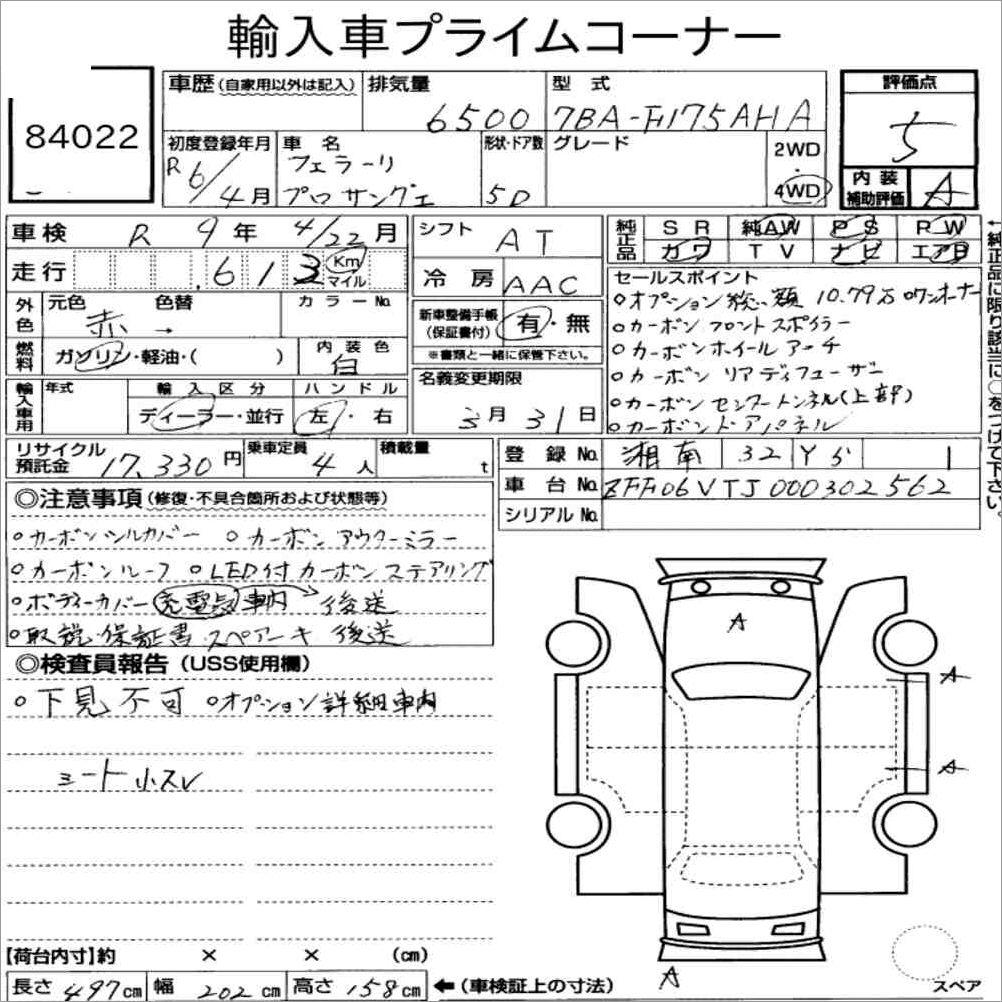 輸入車プライムコーナー
84022
車歴(自家用以外は記入) 排気量 6500 型式 7BA-F175AHA
評価点 5
初度登録年月 R6/4月 車名 フェラーリ プロサングエ
形状・ドア数 5D グレード 2WD・4WD
内装補助評価 A
車検 R 9年 4/22月
走行 .613 Km マイル
シフト AT
冷房 AAC
純正品 SR 純AW PS RW
カワ TV ナビ エアB
←純正品に限り該当に○をつけて下さい。
外色 元色 赤→ 色替 カラーNo.
燃料 ガソリン・軽油・( ) 内装色 白
新車整備手帳(保証書付) 有・無
※書類と一緒に保管下さい。
輸入車用 年式 輸入区分 ディーラー・並行 ハンドル 左・右
名義変更期限 3月31日
セールスポイント
○オプション総額 10.79万 ○ワンオーナー
○カーボンフロントスポイラー
○カーボンホイールアーチ
○カーボンリアディフューザー
○カーボンセンタートンネル(上部)
○カーボンドアパネル
リサイクル預託金 17.330円 乗車定員 4人 積載量 t
登録No. 湘南 32 Y 5 1
車台No. ZFF06VTJ000302562
シリアルNo.
◎注意事項(修復・不具合箇所および状態等)
○カーボンシルカバー ○カーボンアウターミラー
○カーボンルーフ ○LED付カーボンステアリング
○ボディーカバー 充電器 車内 後送
○取説・保証書・スペアーキ 後送
◎検査員報告(USS使用欄)
○下見不可 ○オプション詳細車内
シート小スレ
A
A
A
A
【荷台内寸】約 × × (cm)
長さ 497cm 幅 202cm 高さ 158cm ←(車検証上の寸法)
スペア